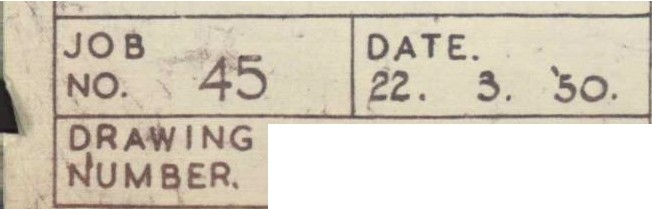 JOB
NO. 45
DATE.
22. 3. '50.
DRAWING
NUMBER.